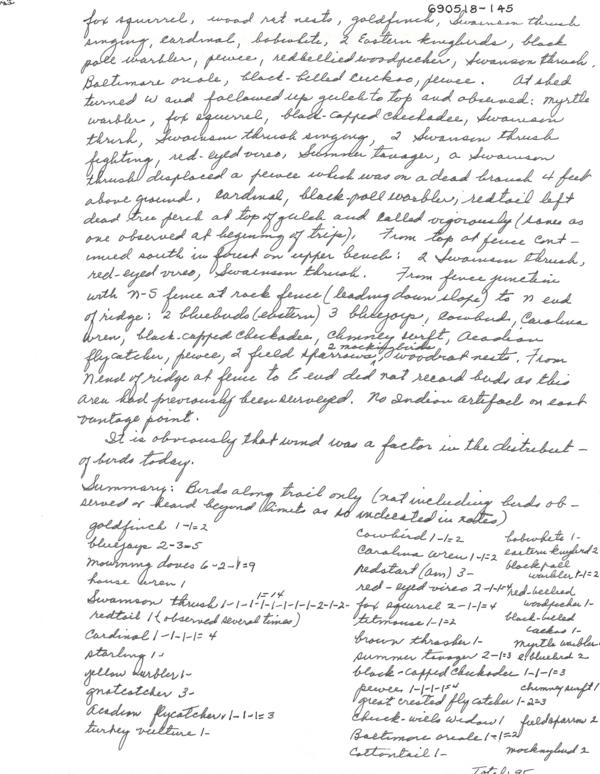 690518-145
fox squirrel, wood rat nests, goldfinch, Swainson thrush
singing, cardinal, bobwhite, 2 Eastern kingbirds, black
poll warbler, pewee, redbellied woodpecker, Swainson thrush,
Baltimore oriole, black-billed cuckoo, pewee. At shed
turned W and followed up gulch to top and observed: myrtle
warbler, fox squirrel, black-capped chickadee, Swainson
thrush, Swainson thrush singing, 2 Swanson thrush
fighting, red-eyed vireo, Summer tanager, a Swainson
thrush displaced a pewee which was on a dead branch 4 feet
above ground, cardinal, black-poll warbler; redtail left
dead tree perch at top of gulch and called vigorously (same as
one observed at begining of trip). From top at fence cont-
inued south in forest on upper bench: 2 Swainson thrush,
red-eyed vireo, Swainson thrush. From fence junction
with N-S fence at rock fence (leading down slope) to N end
of ridge: 2 bluebirds (eastern) 3 bluejays, cowbird, Carolina
wren, black-capped chickadee, chimney swift, Acadian
flycatcher, pewee, 2 field sparrows, 2 mockingbirds, woodrat nests. From
N end of ridge at fence to E end did not record birds as this
area had previously been surveyed. No Indian artifact on east
vantage point.
It is obviously that wind was a factor in the distribut-
of birds today.
Summary: Birds along trail only (not including birds ob-
served or heard beyond limits as so indicated in notes)
goldfinch 1-1=2
bluejays 2-3=5
mourning doves 6-2-1=9
house wren 1
Swainson thrush 1-1-1-1-1-1-1-1-2-1-2-1=14
redtail 1 (observed several times)
Cardinal 1-1-1-1=4
starling 1-
yellow warbler 1-
gnatcatcher 3-
Acadian flycatcher 1-1-1=3
turkey vulture 1-
Cowbird 1-1=2
Carolina wren 1-1=2
redstart (am) 3-
red-eyed vireo 2-1-1=4
fox squirrel 2-1-1=4
titmouse 1-1=2
brown thrasher 1-
summer tanager 2-1=3
black-capped chickadee 1-1-1=3
pewees 1-1-1-1=4
great crested flycatcher 1-2=3
Chuck-wills widow 1
Baltimore oriole 1-1=2
Cottontail 1-
bobwhite 1-
eastern kingbird 2
blackpoll
warbler 1-1=2
red-bellied
woodpecker 1-
black-billed
cuckoo 1-
Myrtle warbler
e bluebird 2
chimney swift 1
fieldsparrow 2
mockingbird 2